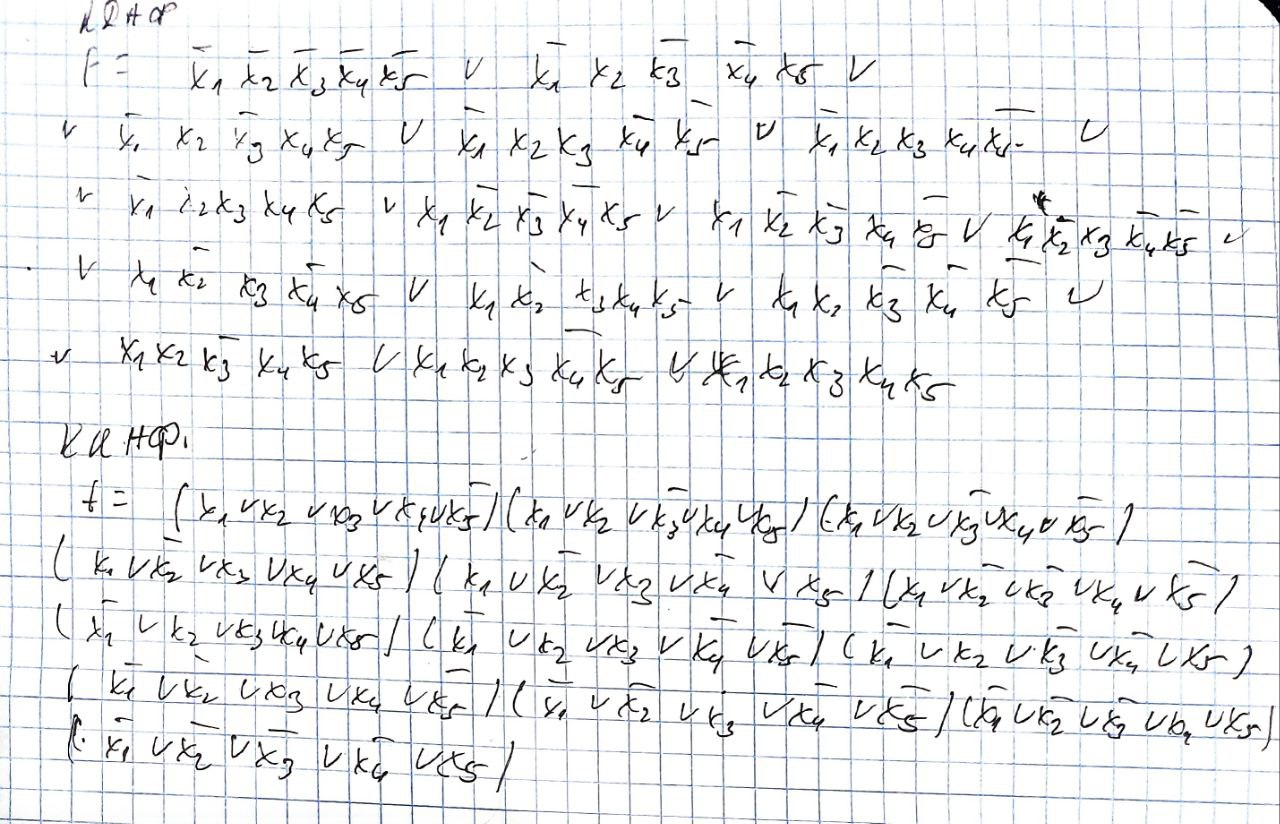 КДНФ
f = x̄1 x̄2 x̄3 x̄4 x̄5 ∨ x̄1 x2 x̄3 x̄4 x5 ∨
∨ x̄1 x2 x̄3 x4 x5 ∨ x̄1 x2 x3 x̄4 x̄5 ∨ x̄1 x2 x3 x4 x̄5 ∨
∨ x̄1 x2 x3 x4 x5 ∨ x1 x̄2 x̄3 x̄4 x5 ∨ x1 x̄2 x̄3 x4 x̄5 ∨ x1 x̄2 x3 x̄4 x̄5 ∨
∨ x1 x̄2 x3 x̄4 x5 ∨ x1 x̄2 x3 x4 x5 ∨ x1 x2 x̄3 x̄4 x̄5 ∨
∨ x1 x2 x̄3 x4 x5 ∨ x1 x2 x3 x̄4 x5 ∨ x1 x2 x3 x4 x5
ККНФ.
f = (x1 ∨ x2 ∨ x3 ∨ x4 ∨ x̄5) (x1 ∨ x2 ∨ x̄3 ∨ x4 ∨ x5) (x1 ∨ x2 ∨ x̄3 ∨ x4 ∨ x̄5)
(x1 ∨ x̄2 ∨ x3 ∨ x4 ∨ x5) (x1 ∨ x̄2 ∨ x3 ∨ x̄4 ∨ x5) (x1 ∨ x̄2 ∨ x̄3 ∨ x4 ∨ x̄5)
(x̄1 ∨ x2 ∨ x3 ∨ x4 ∨ x5) (x̄1 ∨ x2 ∨ x3 ∨ x̄4 ∨ x̄5) (x̄1 ∨ x2 ∨ x̄3 ∨ x̄4 ∨ x5)
(x̄1 ∨ x̄2 ∨ x3 ∨ x4 ∨ x̄5) (x̄1 ∨ x̄2 ∨ x3 ∨ x̄4 ∨ x̄5) (x̄1 ∨ x̄2 ∨ x̄3 ∨ x4 ∨ x5)
(x̄1 ∨ x̄2 ∨ x̄3 ∨ x̄4 ∨ x5)